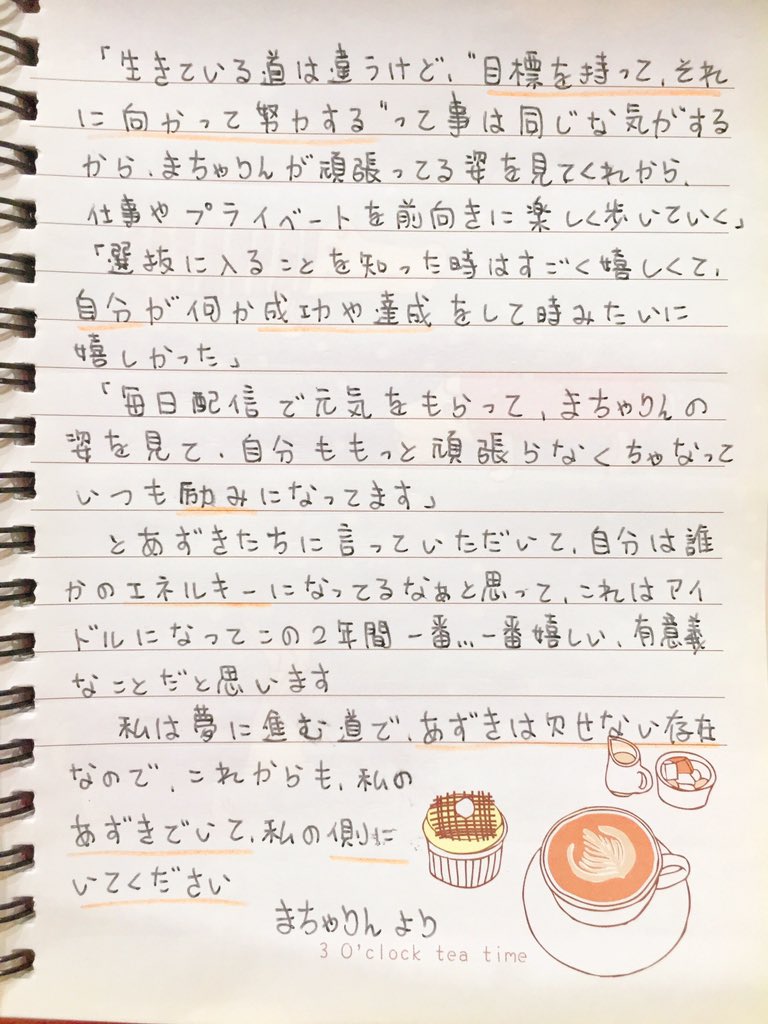 「生きている道は違うけど、"目標を持って、それ
に向かって努力する"って事は同じな気がする
から、まちゃりんが頑張ってる姿を見てくれから、
仕事やプライベートを前向きに楽しく歩いていく」
「選抜に入ることを知った時はすごく嬉しくて、
自分が何か成功や達成をして時みたいに
嬉しかった」
「毎日配信で元気をもらって、まちゃりんの
姿を見て、自分ももっと頑張らなくちゃなって
いつも励みになってます」
とあずきたちに言っていただいて、自分は誰
かのエネルキーになってるなぁと思って、これはアイ
ドルになってこの2年間一番...一番嬉しい、有意義
なことだと思います
私は夢に進む道で、あずきは欠せない存在
なので、これからも、私の
あずきでいて、私の側に
いてください
まちゃりんより
3 O'clock tea time